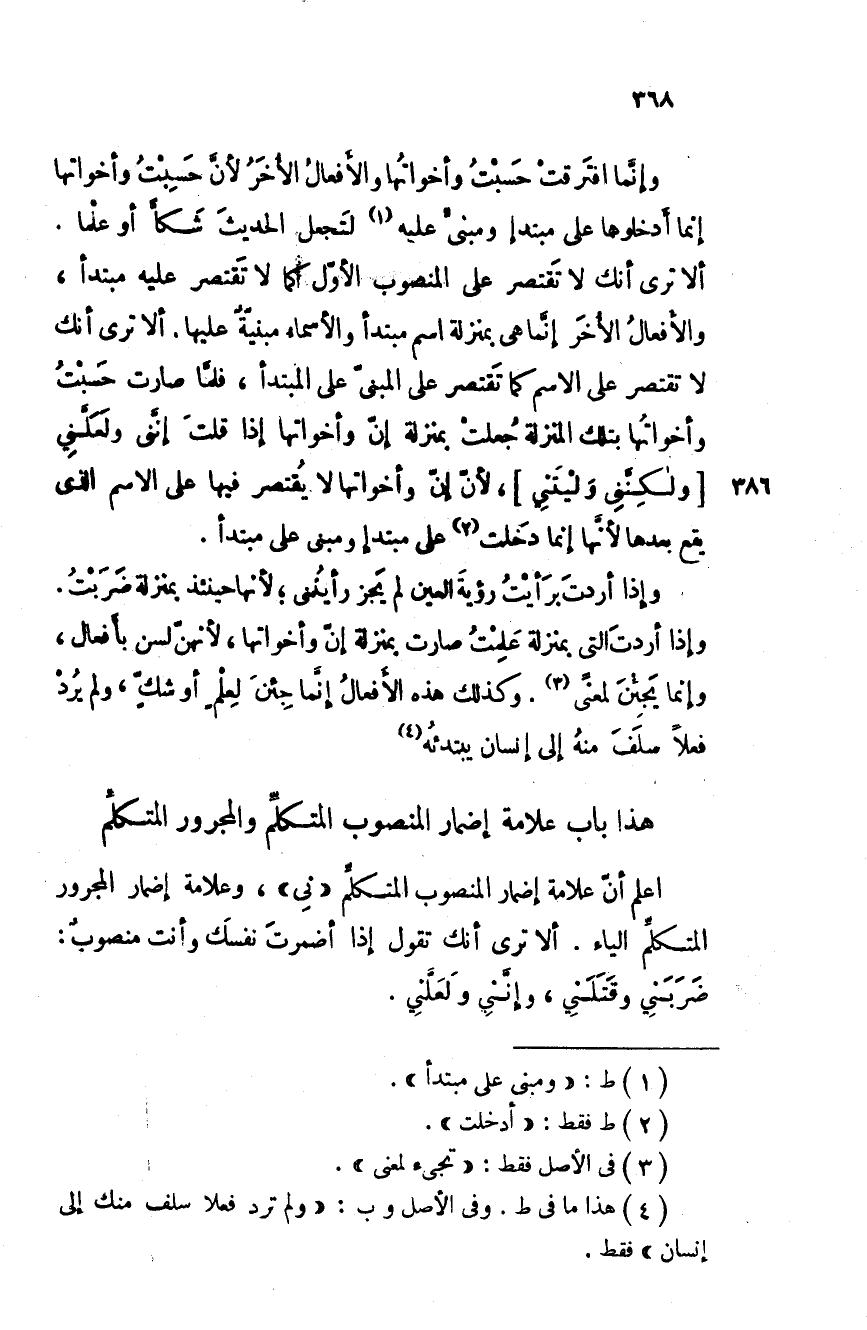 ٣٦٨
وإنَّما افتَرقتْ حَسبْتُ وأخواتُها والأَفعالُ الأُخَرُ لأنَّ حَسِبْتُ وأخواتها
إنما أَدخلوها على مبتدإ ومبنىٍّ عليه (١) لتَجعل الحديثَ شَكًّا أو علْما .
ألا ترى أنك لا تَقتصر على المنصوب الأوّل كما لا تَقتصر عليه مبتدأ ،
والأفعالُ الأخَر إنَّما هى بمنزلة اسم مبتدأ والأسماء مبنيّةٌ عليها . ألا ترى أنك
لا تقتصر على الاسم كما تَقتصر على المبنىّ على المبتدأ ، فلمَّا صارت حَسبْتُ
وأخواتُها بتلك المنزلة جُعلتْ بمنزلة إنّ وأخواتها إذا قلتَ إنَّنى ولَعَلَّنِي
٣٨٦ [ ولٰكِنَّنِى وَلَيْتَنِي ] ، لأنّ إنّ وأخواتها لا يُقتصر فيها على الاسم الذى
يقع بعدها لأنَّها إنما دَخلت (٢) على مبتدإ ومبنى على مبتدأ .
وإذا أردتَ برَأيْتُ رؤيةَ العين لم يَجز رأيتُنى ؛ لأنها حينئذ بمنزلة ضَرَبْتُ .
وإذا أردتَ التى بمنزلة عَلِمْتُ صارت بمنزلة إنّ وأخواتها ، لأنهنّ لسن بأَفعال ،
وإنما يَجِئْنَ لمعنًى (٣) . وكذلك هذه الأَفعالُ إنَّما جِئنَ لِعِلْمٍ أو شكٍّ ، ولم يُرِدْ
فعلاً سلَفَ منهُ إلى إنسان يبتدئهُ (٤)
هذا باب علامة إضمار المنصوب المتكلِّم والمجرور المتكلِّم
اعلم أنّ علامة إضمار المنصوب المتكلِّم « نِى » ، وعلامة إضمار المجرور
المتكلِّم الياء . ألا ترى أنك تقول إذا أضمرتَ نفسَك وأنت منصوبٌ :
ضَرَبَنِي وقَتَلَنِي ، وإنَّنِي ولَعَلَّنِي .
( ١ ) ط : « ومبنى على مبتدأ » .
( ٢ ) ط فقط : « أدخلت » .
( ٣ ) فى الأصل فقط : « تجىء لمعنى » .
( ٤ ) هذا ما فى ط . وفى الأصل و ب : « ولم ترد فعلا سلف منك إلى
إنسان » فقط .